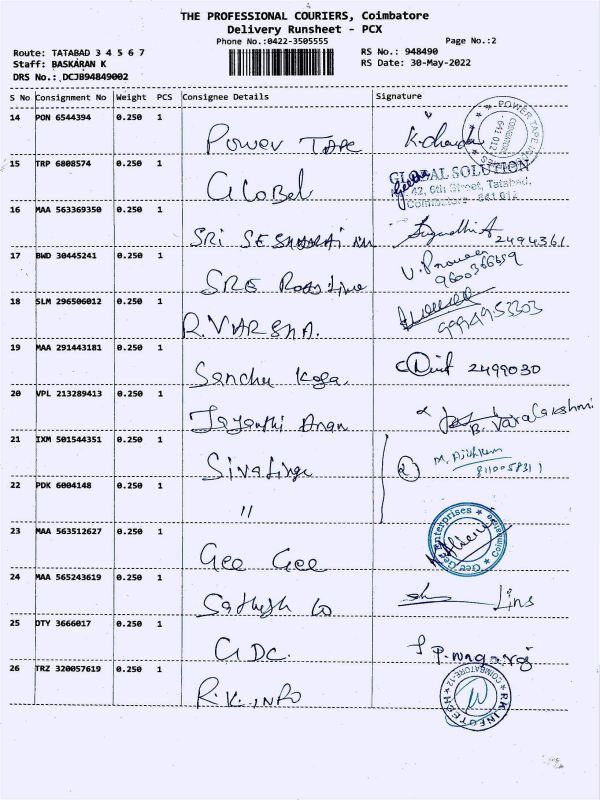 THE PROFESSIONAL COURIERS, Coimbatore
Delivery Runsheet - PCX
Phone No.:0422-3505555
Page No.:2
Route: TATABAD 3 4 5 6 7
RS No.: 948490
Staff: BASKARAN K
RS Date: 30-May-2022
DRS No.: DCJB94849002
S No Consignment No Weight PCS Consignee Details Signature
14 PON 6544394 0.250 1
POWER TAPE
POWER TAPE
COIMBATORE
641 012
15 TRP 6808574 0.250 1
Global
GLOBAL SOLUTION
42, 6th Street, Tatabad,
Coimbatore - 641 012
16 MAA 563369350 0.250 1
SRI
2494361
17 BWD 30445241 0.250 1
SRE
V. Praveen
9600366659
18 SLM 296506012 0.250 1
R. VARSHA.
9994953303
19 MAA 291443181 0.250 1
Sanchu
2499030
20 VPL 213289413 0.250 1
Jayanthi
B. Varalakshmi
21 IXM 501544351 0.250 1
Sivalinga
2
22 PDK 6004148 0.250 1
"
23 MAA 563512627 0.250 1
Gee Gee
Gee Gee Enterprises
Coimbatore
24 MAA 565243619 0.250 1
Sathish Co
Lins
25 OTY 3666017 0.250 1
GDC.
P. nagaraj
26 TRZ 320057619 0.250 1
R.K. INFO
COIMBATORE-12
RK INFOTECH